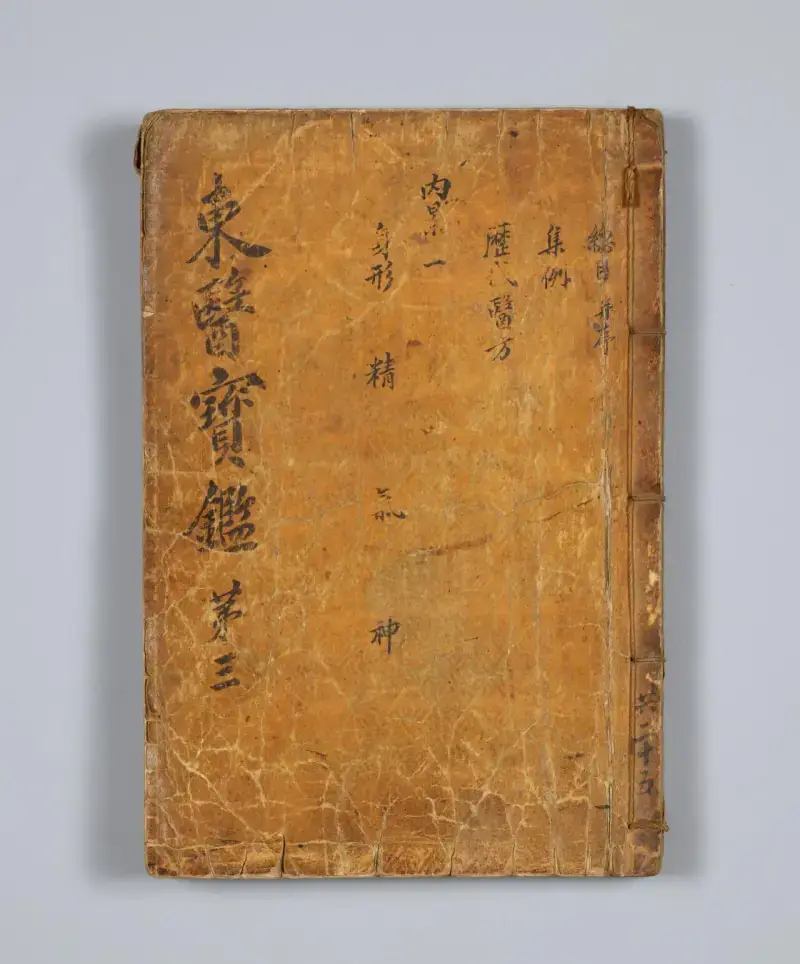 共二十五
緫目 并序
集例
歷代醫方
内景一
身形 精 氣 神
東醫寳鑑 苐三